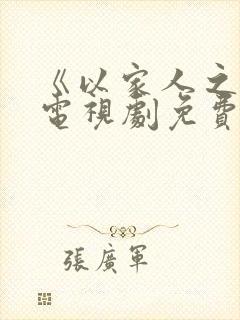 《以家人之
電視劇免費
張廣軍